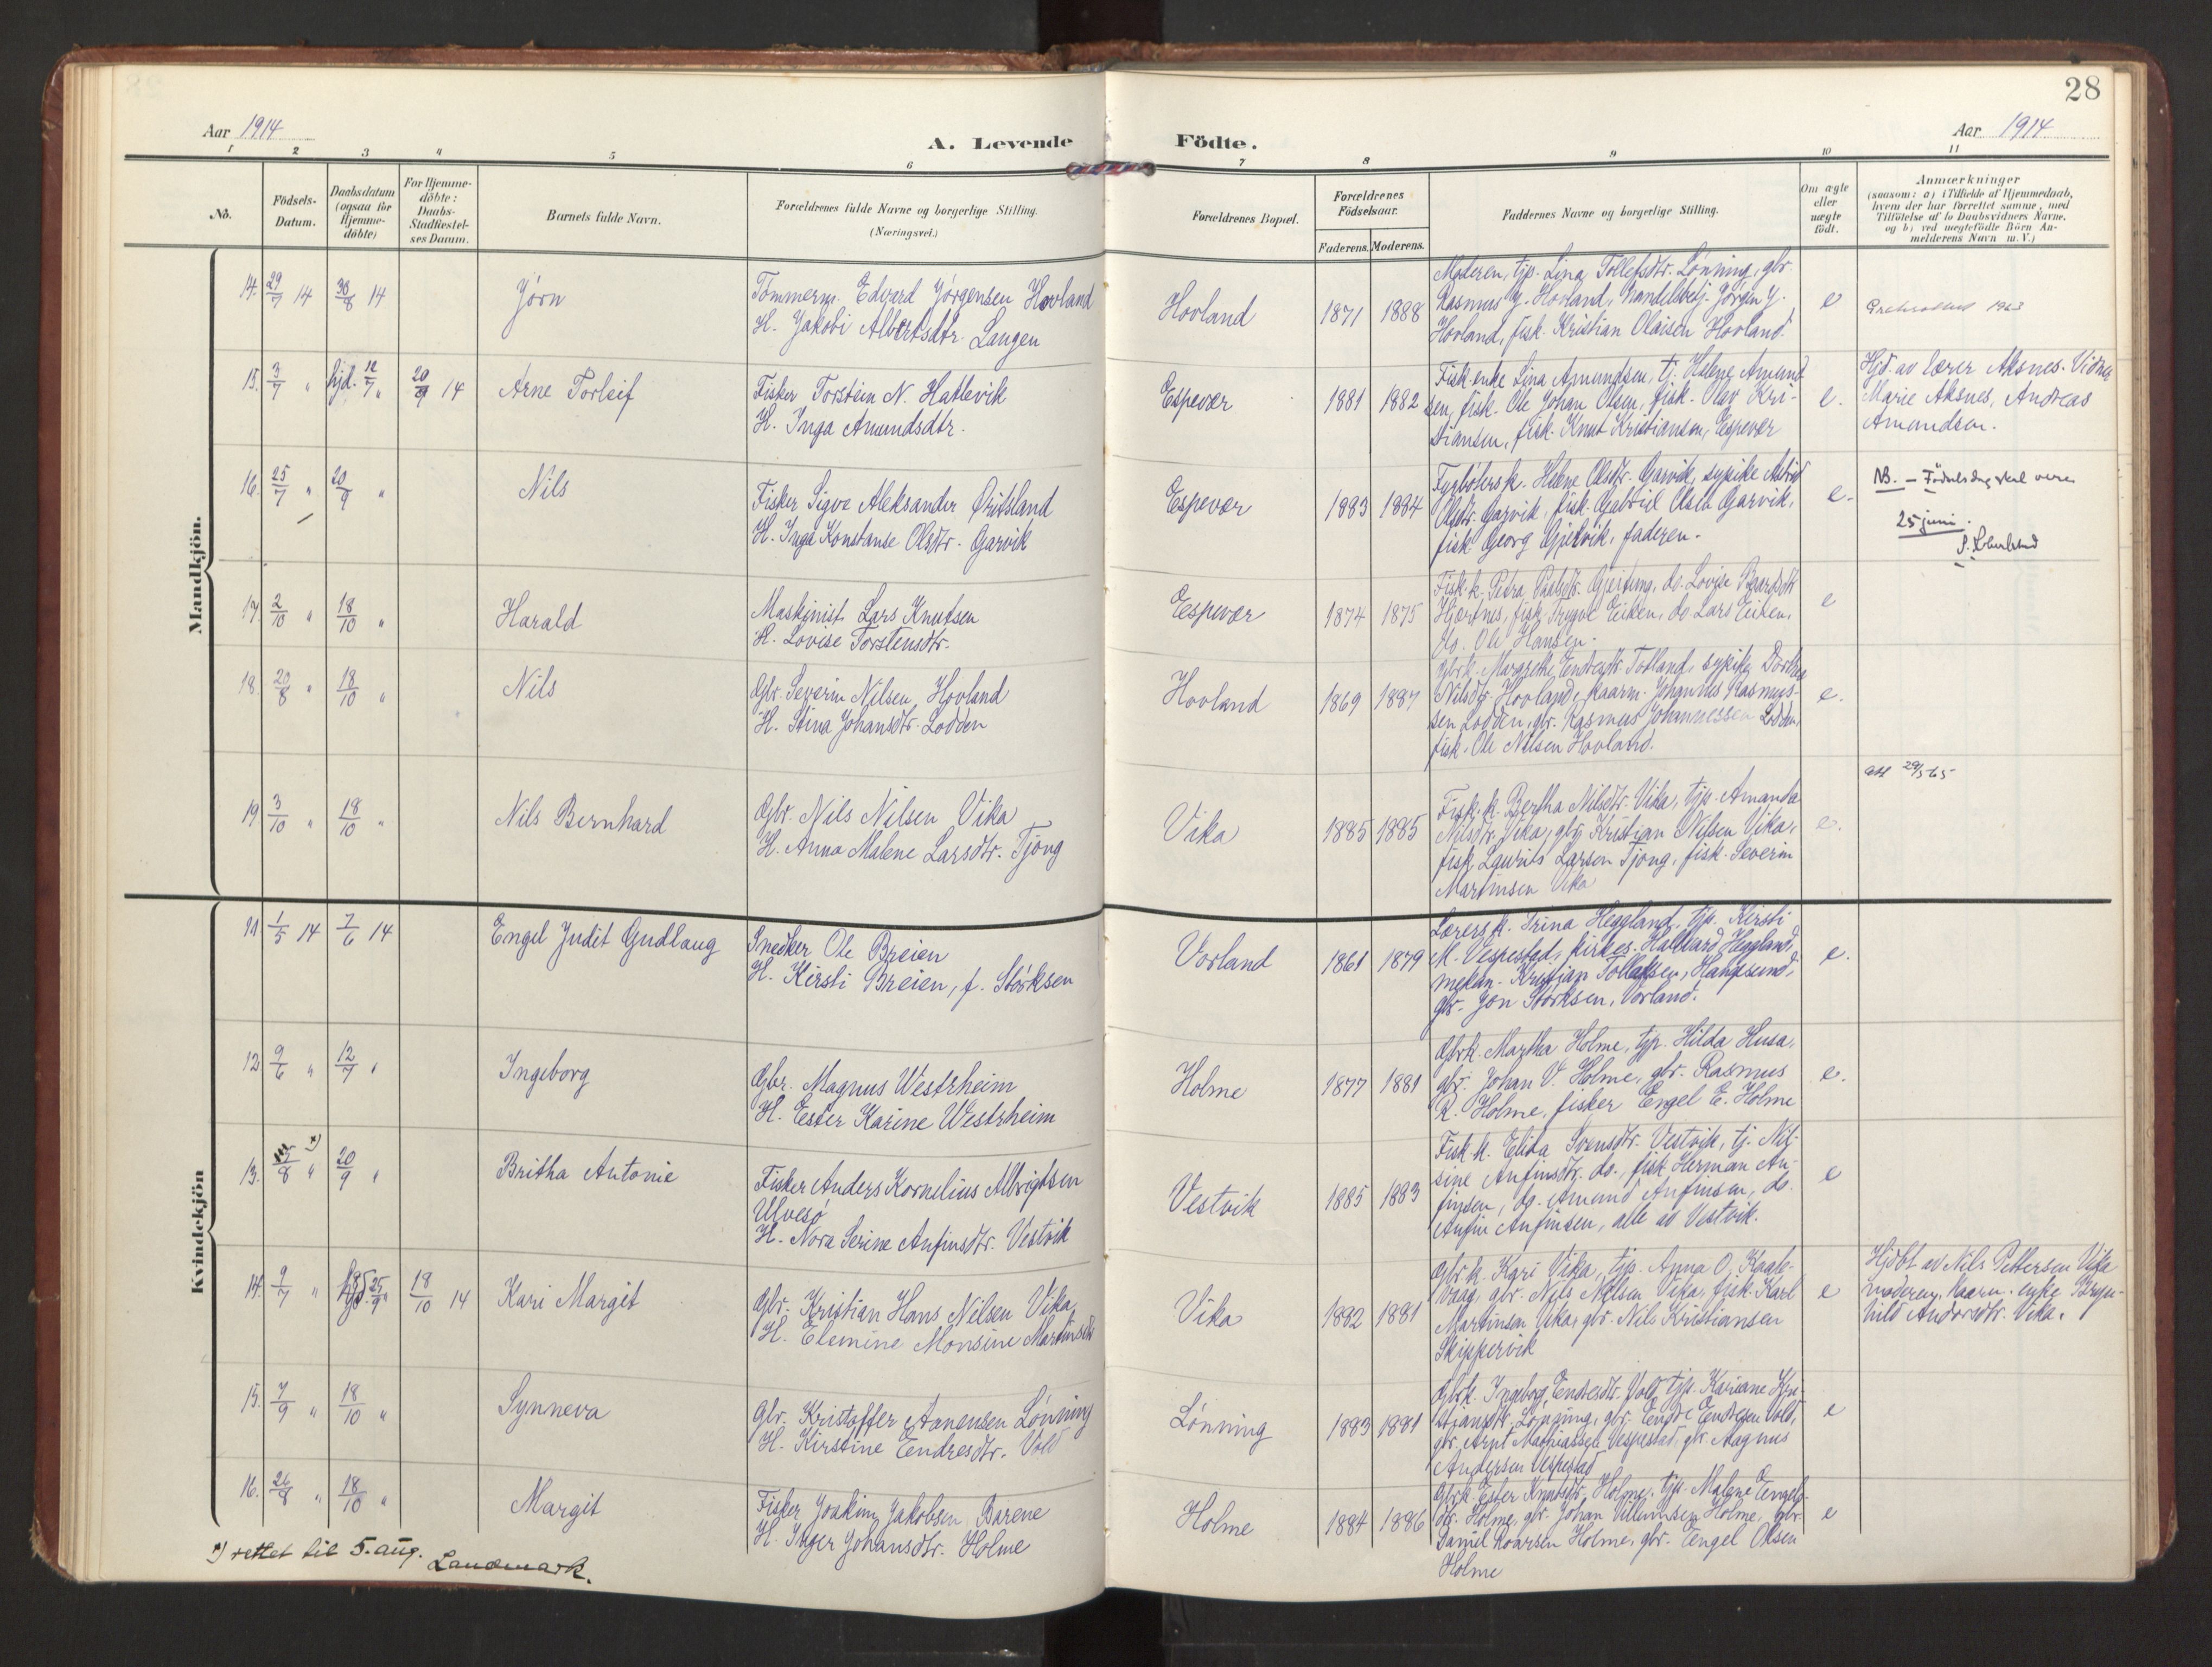 28
Aar 1914
A. Levende Födte.
Aar 1914
1 2 3 4 5 6 7 8 9 10 11
No.
Födsels-Datum.
Daabsdatum (ogsaa for Hjemme-döbte)
For Hjemme-döbte: Daabs-Stadfestel-ses Datum.
Barnets fulde Navn.
Forældrenes fulde Navne og borgerlige Stilling.
(Næringsvei.)
Forældrenes Bopæl.
Forældrenes Födselsaar.
Faderens. Moderens.
Faddernes Navne og borgerlige Stilling.
Om ægte eller uægte födt.
Anmærkninger
(saasom: a) i Tilfælde af Hjemmedaab,
hvem der har forrettet samme, med
Tilföielse af to Daabsvidners Navne.
og b) ved uegtefödte Börn An-
melderens Navn m. V.)
Mandkjön.
14. 29/7 14 30/8 14 Jørn
Tømmerm. Edvard Jørgensen Hovland
H. Jakobi Albertsdtr. Langen
Hovland 1871 1888
Moderen, tjp. Lina Tollefsdtr. Lønning, gbr.
Rasmus J. Hovland, Handelsbetj. Jørgen J.
Hovland, fisk. Kristian Olaisen Hovland.
e
1963
15. 3/7 " hjd. 12/7 " 20/9 14 Arne Torleif
Fisker Torstein N. Hatlevik
H. Inga Amundsdtr.
Espevær 1881 1882
Fisk. enke Lina Amundsen, tj. Helene Amund-
sen, fisk. Ole Johan Olsen, fisk. Olav Kri-
stiansen, fisk. Knut Kristiansen, Espevær
e.
Hjd. av lærer Aksnes. Vidner
Marie Aksnes, Andreas
Amundsen.
16. 25/7 " 20/9 " Nils
Fisker Sigve Aleksander Øritsland
H. Inga Konstanse Olsdtr. Garvik
Espevær 1883 1884
Fyrbøtersk. Helene Olsdtr. Garvik, sypike Astrid
Olsdtr. Garvik, fisk. Gabriel Olsen Garvik,
fisk. Georg Gjelvik, faderen.
e.
NB. – Fødselsdag skal være
25 juni.
17. 2/10 " 18/10 " Harald
Maskinist Lars Knutsen
H. Lovise Torstensdtr.
Espevær 1874 1875
Fisk. k. Petra
Hjertnes, fisk. Trygve Eiken, do Lars Eiken,
do. Ole Hansen.
e
18. 20/8 " 18/10 " Nils
Gbr. Severin Nilsen Hovland
H. Stina Johansdtr. Lodden
Hovland 1869 1887
Gbrk. Margrethe Endresdtr. Totland, sypike Dorthea
Nilsdtr. Hovland, kaarm. Johannes Rasmus-
sen Lodden, gbr. Rasmus Johannessen Lodden,
fisk. Ole Nilsen Hovland.
e.
19. 3/10 " 18/10 " Nils Bernhard
Gbr. Nils Nilsen Vika
H. Anna Malene Larsdtr. Tjong
Vika 1885 1885
Fisk. k. Bertha Nilsdtr. Vika, tjp. Amanda
Nilsdtr. Vika, gbr. Kristian Nilsen Vika,
fisk. Laurits Larsen Tjong, fisk. Severin
Martinsen Vika
e.
29/5 65
Kvindekjön
11. 1/5 14 7/6 14 Engel Judit Gudlaug
Snedker Ole Breien
H. Kirsti Breien, f. Størksen
Vorland 1861 1879
Lærersk. Trina Heggland, tjp. Kirsti
M. Vespestad, kirkes. Hallvard Heggland,
mekan. Kristian Tollaksen, Haugesund,
gbr. Jon Størksen, Vorland.
e.
12. 9/6 " 12/7 " Ingeborg
Gbr. Magnus Westrheim
H. Ester Karine Westrheim
Holme 1877 1881
Gbrk. Martha Holme, tjp. Hilda Husa,
gbr. Johan V. Holme, gbr. Rasmus
R. Holme, fisker Engel E. Holme
e.
13. 5/8 " *) 20/9 " Britha Antonie
Fisker Anders Kornelius Albrigtsen
Ulvesø
H. Nora Serine Anfinsdtr. Vestvik
Vestvik 1885 1883
Fisk. k. Elida Svensdtr. Vestvik, tj. Nil-
sine Anfinsdtr. do., fisk. Herman An-
finsen, do. Amund Anfinsen, do.
Anfin Anfinsen, alle av Vestvik.
e
14. 9/7 " hjd. 25/9 " 18/10 14 Kari Margit
Gbr. Kristian Hans Nilsen Vika,
H. Elemine Monsine Martinsdtr
Vika 1882 1881
Gbr k. Kari Vika, tjp. Anna O. Kaale-
vaag, gbr. Nils Nilsen Vika, fisk. Karl
Martinsen Vika, gbr. Nils Kristiansen
Skippervik
e
Hjdbt av Nils Pettersen Vika
moderen, kaarm. enke Bryn-
hild Andersdtr. Vika.
15. 7/9 " 18/10 " Synneva
Gbr. Kristoffer Annensen Lønning
H. Kirstine Endresdtr. Vold
Lønning 1883 1881
Gbrk. Ingeborg Endresdtr. Vold, tjp. Kariane Kri-
stiansdtr. Lønning, gbr. Endre Endresen Vold,
gbr. Arnt Mathiassen Vespestad, gbr. Magnus
Andersen Vespestad
e
16. 26/8 " 18/10 " Margit
Fisker Joakim Jakobsen Barene
H. Inger Johansdtr. Holme
Holme 1884 1886
Gbrk. Ester Knutsdtr. Holme, tjp. Malene Engels-
dtr. Holme, gbr. Johan Villumsen Holme, gbr.
Daniel Roarsen Holme, gbr. Engel Olsen
Holme
e
*) rettet til 5. aug. Landmark.